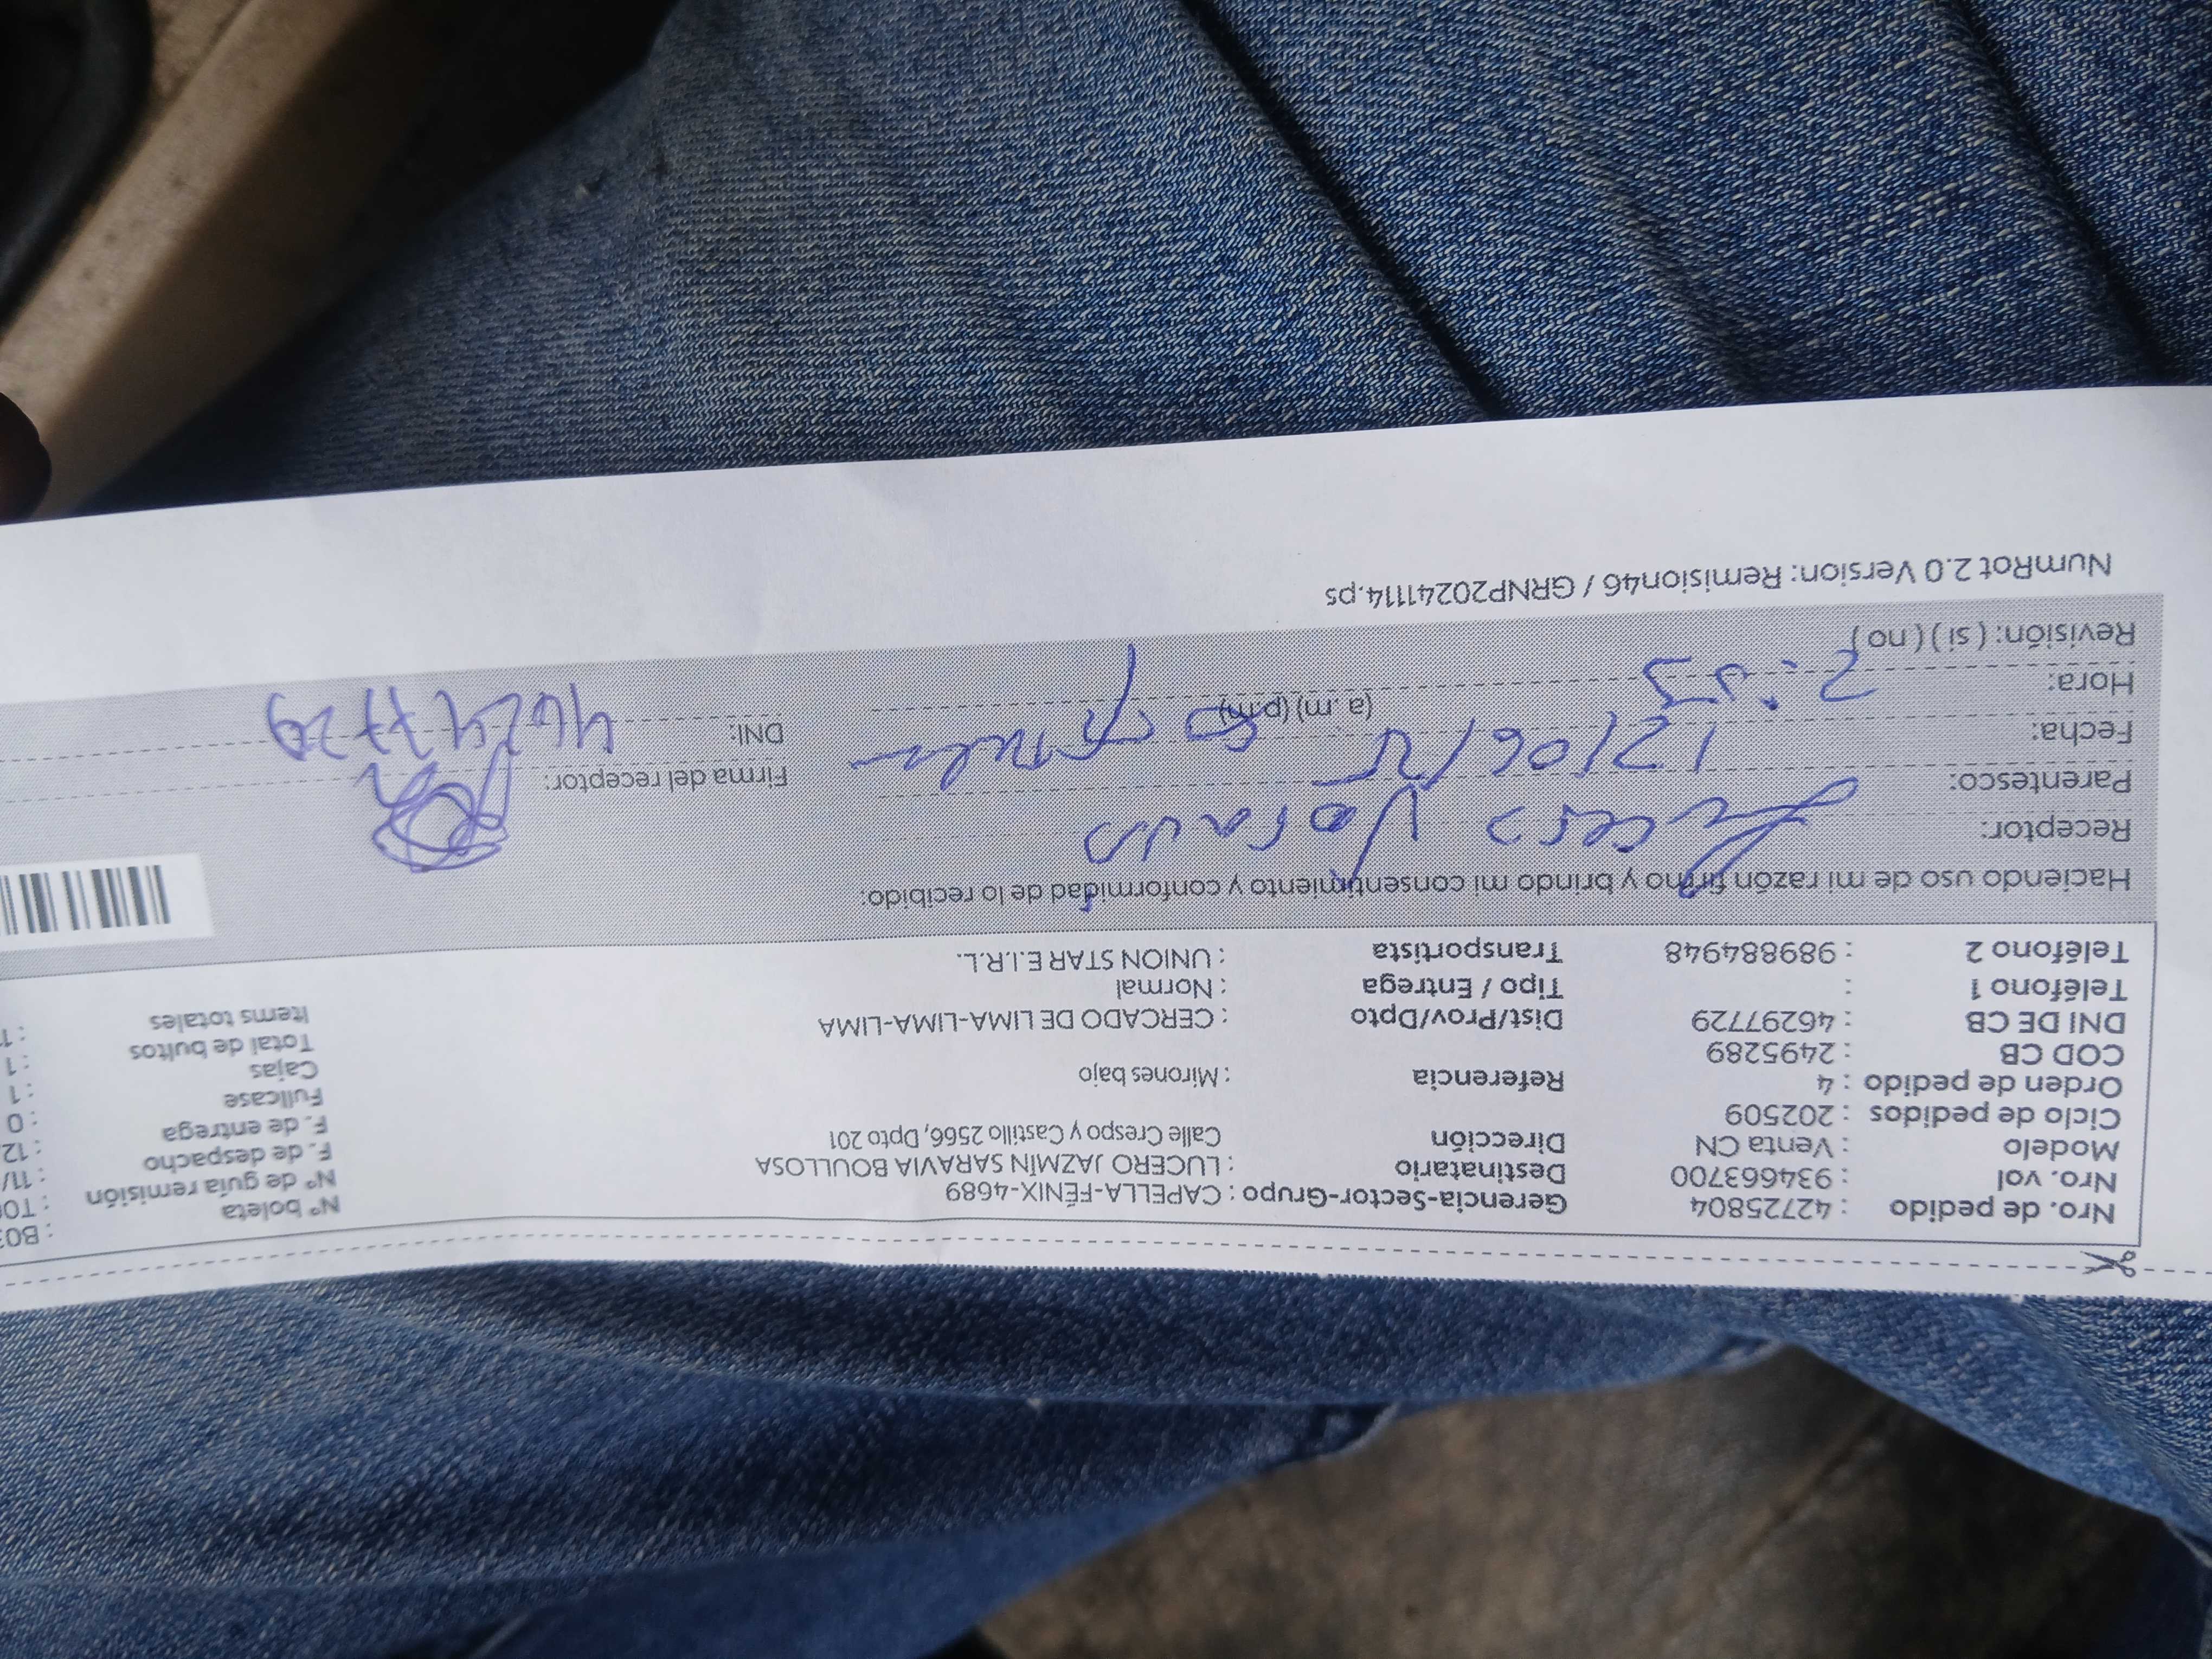 Nro. de pedido : 42725804 Gerencia-Sector-Grupo : CAPELLA-FÉNIX-4689 Nº boleta
Nro. vol : 934663700 Destinatario : LUCERO JAZMÍN SARAVIA BOULLOSA Nº de guía remisión
Modelo : Venta CN Dirección Calle Crespo y Castillo 2566, Dpto 201 F. de despacho : 11/
Ciclo de pedidos : 202509 F. de entrega : 12
Orden de pedido : 4 Referencia : Mirones bajo Fullcase : 0
COD CB : 2495289 Cajas : 1
DNI DE CB : 46297729 Dist/Prov/Dpto : CERCADO DE LIMA-LIMA-LIMA Total de bultos : 1
Teléfono 1 : Tipo / Entrega : Normal Items totales
Teléfono 2 : 989884948 Transportista : UNION STAR E.I.R.L.
Haciendo uso de mi razón firmo y brindo mi consentimiento y conformidad de lo recibido:
Receptor:
Parentesco: Firma del receptor:
Fecha: 12/06/25 DNI:
Hora: (a. m) (p.m)
Revisión: ( si ) ( no )
NumRot 2.0 Version: Remision46 / GRNP20241114.ps